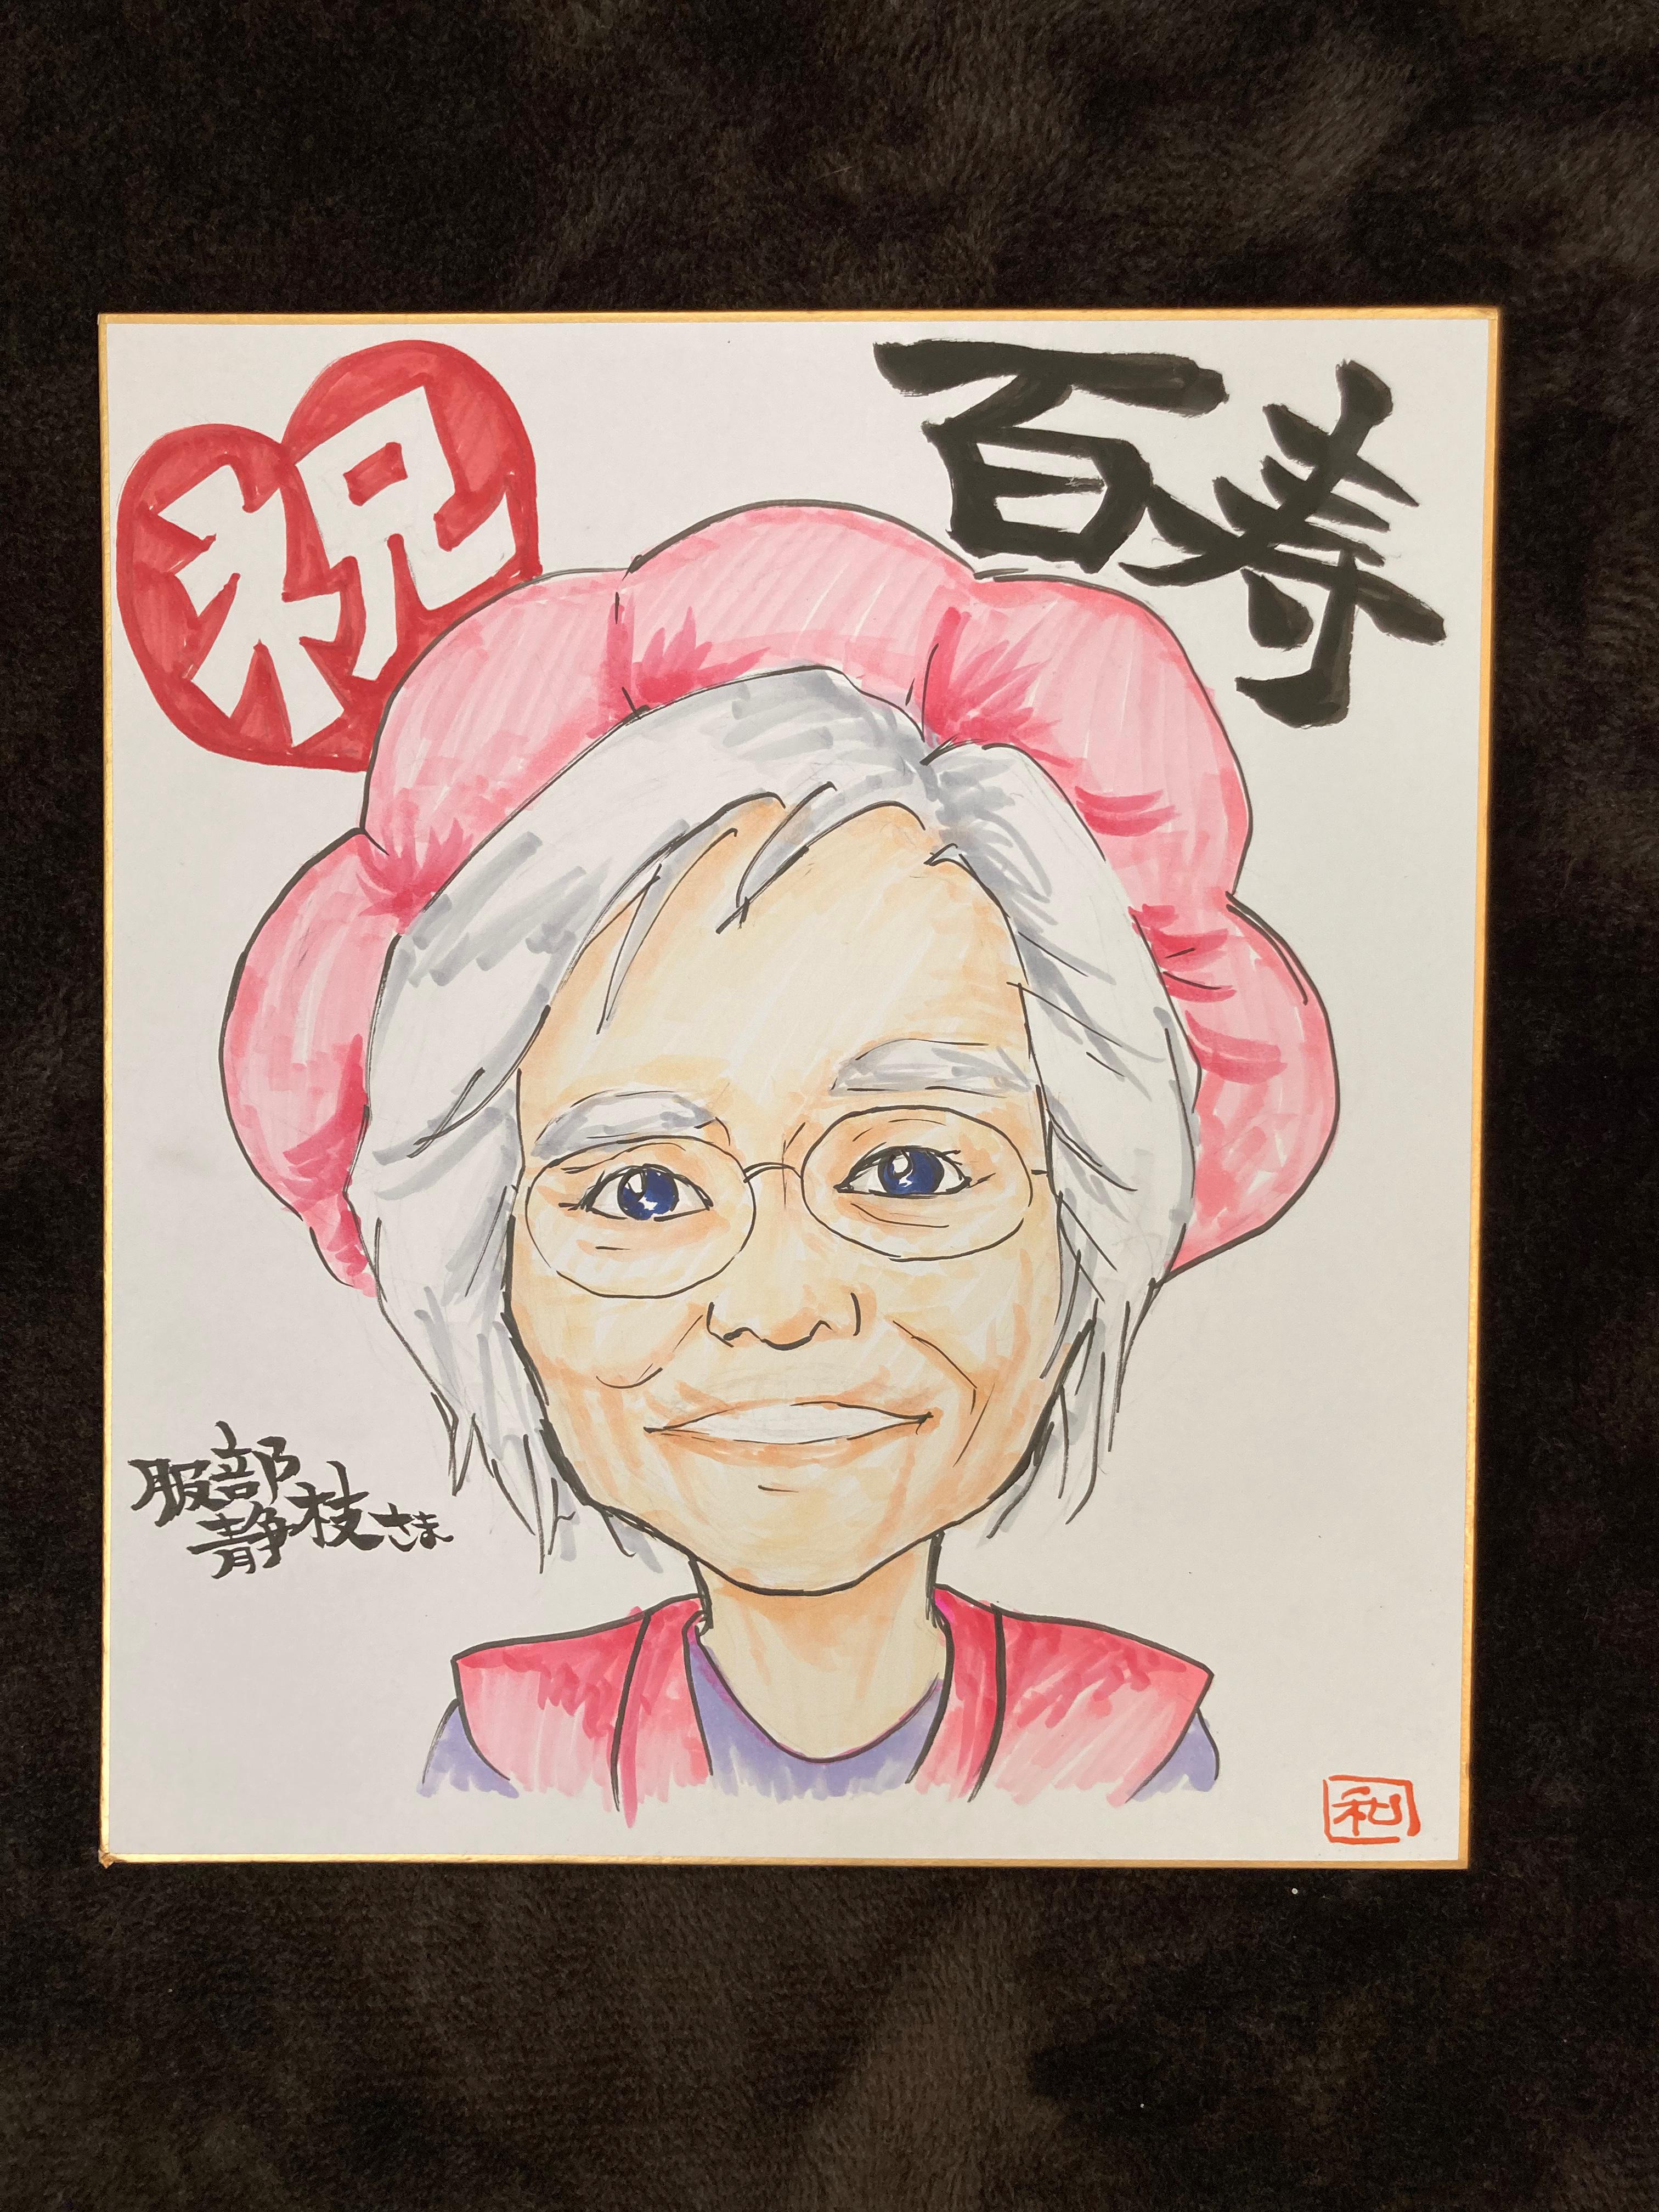 祝
百寿
服部
静枝さま
和